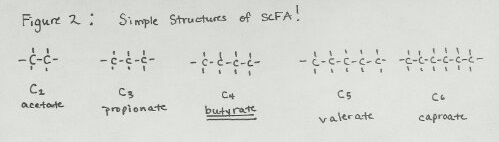 Figure 2: Simple Structures of SCFA!
-C-C- -C-C-C- -C-C-C-C- -C-C-C-C-C- -C-C-C-C-C-C-
C2 C3 C4 C5 C6
acetate propionate butyrate valerate caproate